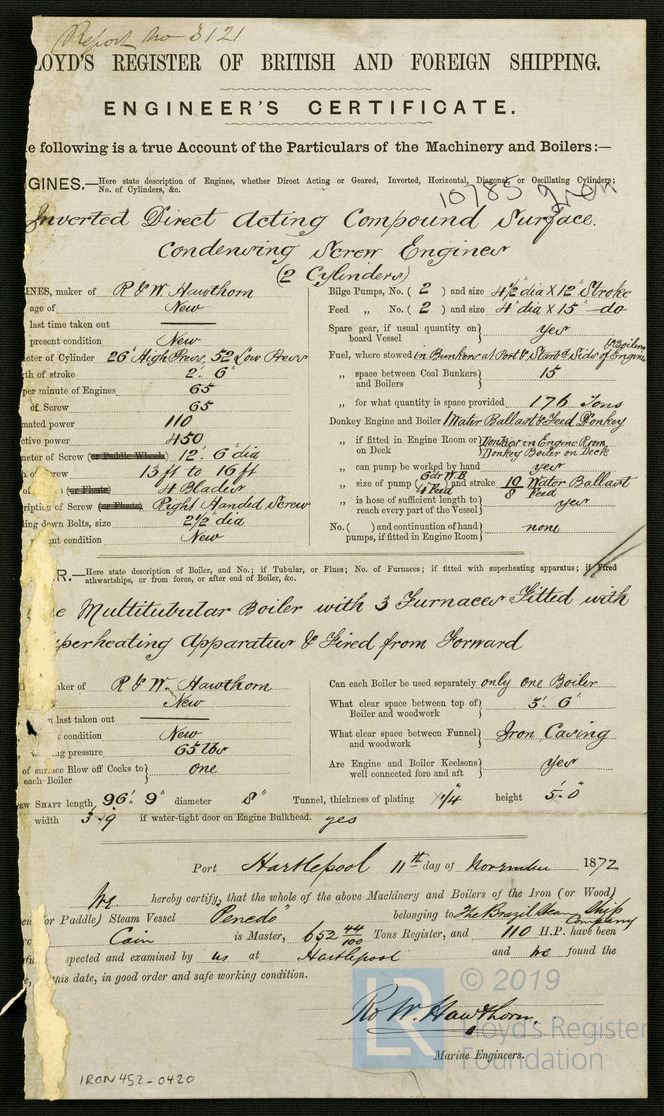 Report No 3121
LOYD'S REGISTER OF BRITISH AND FOREIGN SHIPPING.
ENGINEER'S CERTIFICATE.
e following is a true Account of the Particulars of the Machinery and Boilers:—
GINES.—Here state description of Engines, whether Direct Acting or Geared, Inverted, Horizontal, Diagonal, or Oscillating Cylinders;
No. of Cylinders, &c.
10785 Iron
Inverted Direct Acting Compound Surface.
Condensing Screw Engines
(2 Cylinders)
INES, maker of R & W. Hawthorn
age of New
last time taken out
present condition New
eter of Cylinder 26" High Press, 52 Low Press
th of stroke 2'. 6"
per minute of Engines 65
of Screw 65
nated power 110
ctive power 450
meter of Screw (or Paddle Wheels) 12'. 6" dia
of Screw 13 ft to 16 ft
(or Floats) 4 Blades
ription of Screw (or Floats) Right Handed Screw
ing down Bolts, size 2½" dia
ent condition New
Bilge Pumps, No. ( 2 ) and size 4½ dia X 12" Stroke
Feed „ No. ( 2 ) and size 4" dia X 15" do
Spare gear, if usual quantity on board Vessel } yes
Fuel, where stowed in Bunkers at Port & Starbd Sids of Engine & Boilers
„ space between Coal Bunkers and Boilers } 15
„ for what quantity is space provided 176 Tons
Donkey Engine and Boiler 1 Water Ballast & Feed Donkey
„ if fitted in Engine Room or on Deck } Donkey in Engine Room Donkey Boiler on Deck
„ can pump be worked by hand yes
„ size of pump ( 6 dr W.B 4 Feed ) and stroke 10 Water Ballast 8 Feed
„ is hose of sufficient length to reach every part of the Vessel } yes
No. ( ) and continuation of hand pumps, if fitted in Engine Room } none
R.—Here state description of Boiler, and No.; if Tubular, or Flues; No. of Furnaces; if fitted with superheating apparatus; if Fired
athwartships, or from force, or after end of Boiler, &c.
ne Multitubular Boiler with 3 Furnaces Fitted with
uperheating Apparatus & Fired from Forward
maker of R & W. Hawthorn
New
n last taken out
condition New
ing pressure 65 lbs
of surface Blow off Cocks to each Boiler } one
Can each Boiler be used separately only one Boiler
What clear space between top of Boiler and woodwork } 3'. 6"
What clear space between Funnel and woodwork } Iron Casing
Are Engine and Boiler Keelsons well connected fore and aft } Yes
ew Shaft length, 96'. 9" diameter 8" Tunnel, thickness of plating 1/4 height 5'. 0"
width 3 . 9 if water-tight door on Engine Bulkhead. yes
Port Hartlepool 11th day of November 1872
We hereby certify, that the whole of the above Machinery and Boilers of the Iron (or Wood)
(or Paddle) Steam Vessel "Penedo" belonging to The Brazil Stea Ship Company
Cain is Master, 652 44/100 Tons Register, and 110 H.P. have been
spected and examined by us at Hartlepool and we found the
this date, in good order and safe working condition.
R & W. Hawthorn.
Marine Engineers.
IRON452-0420
LR
© 2019
Lloyd's Register
Foundation